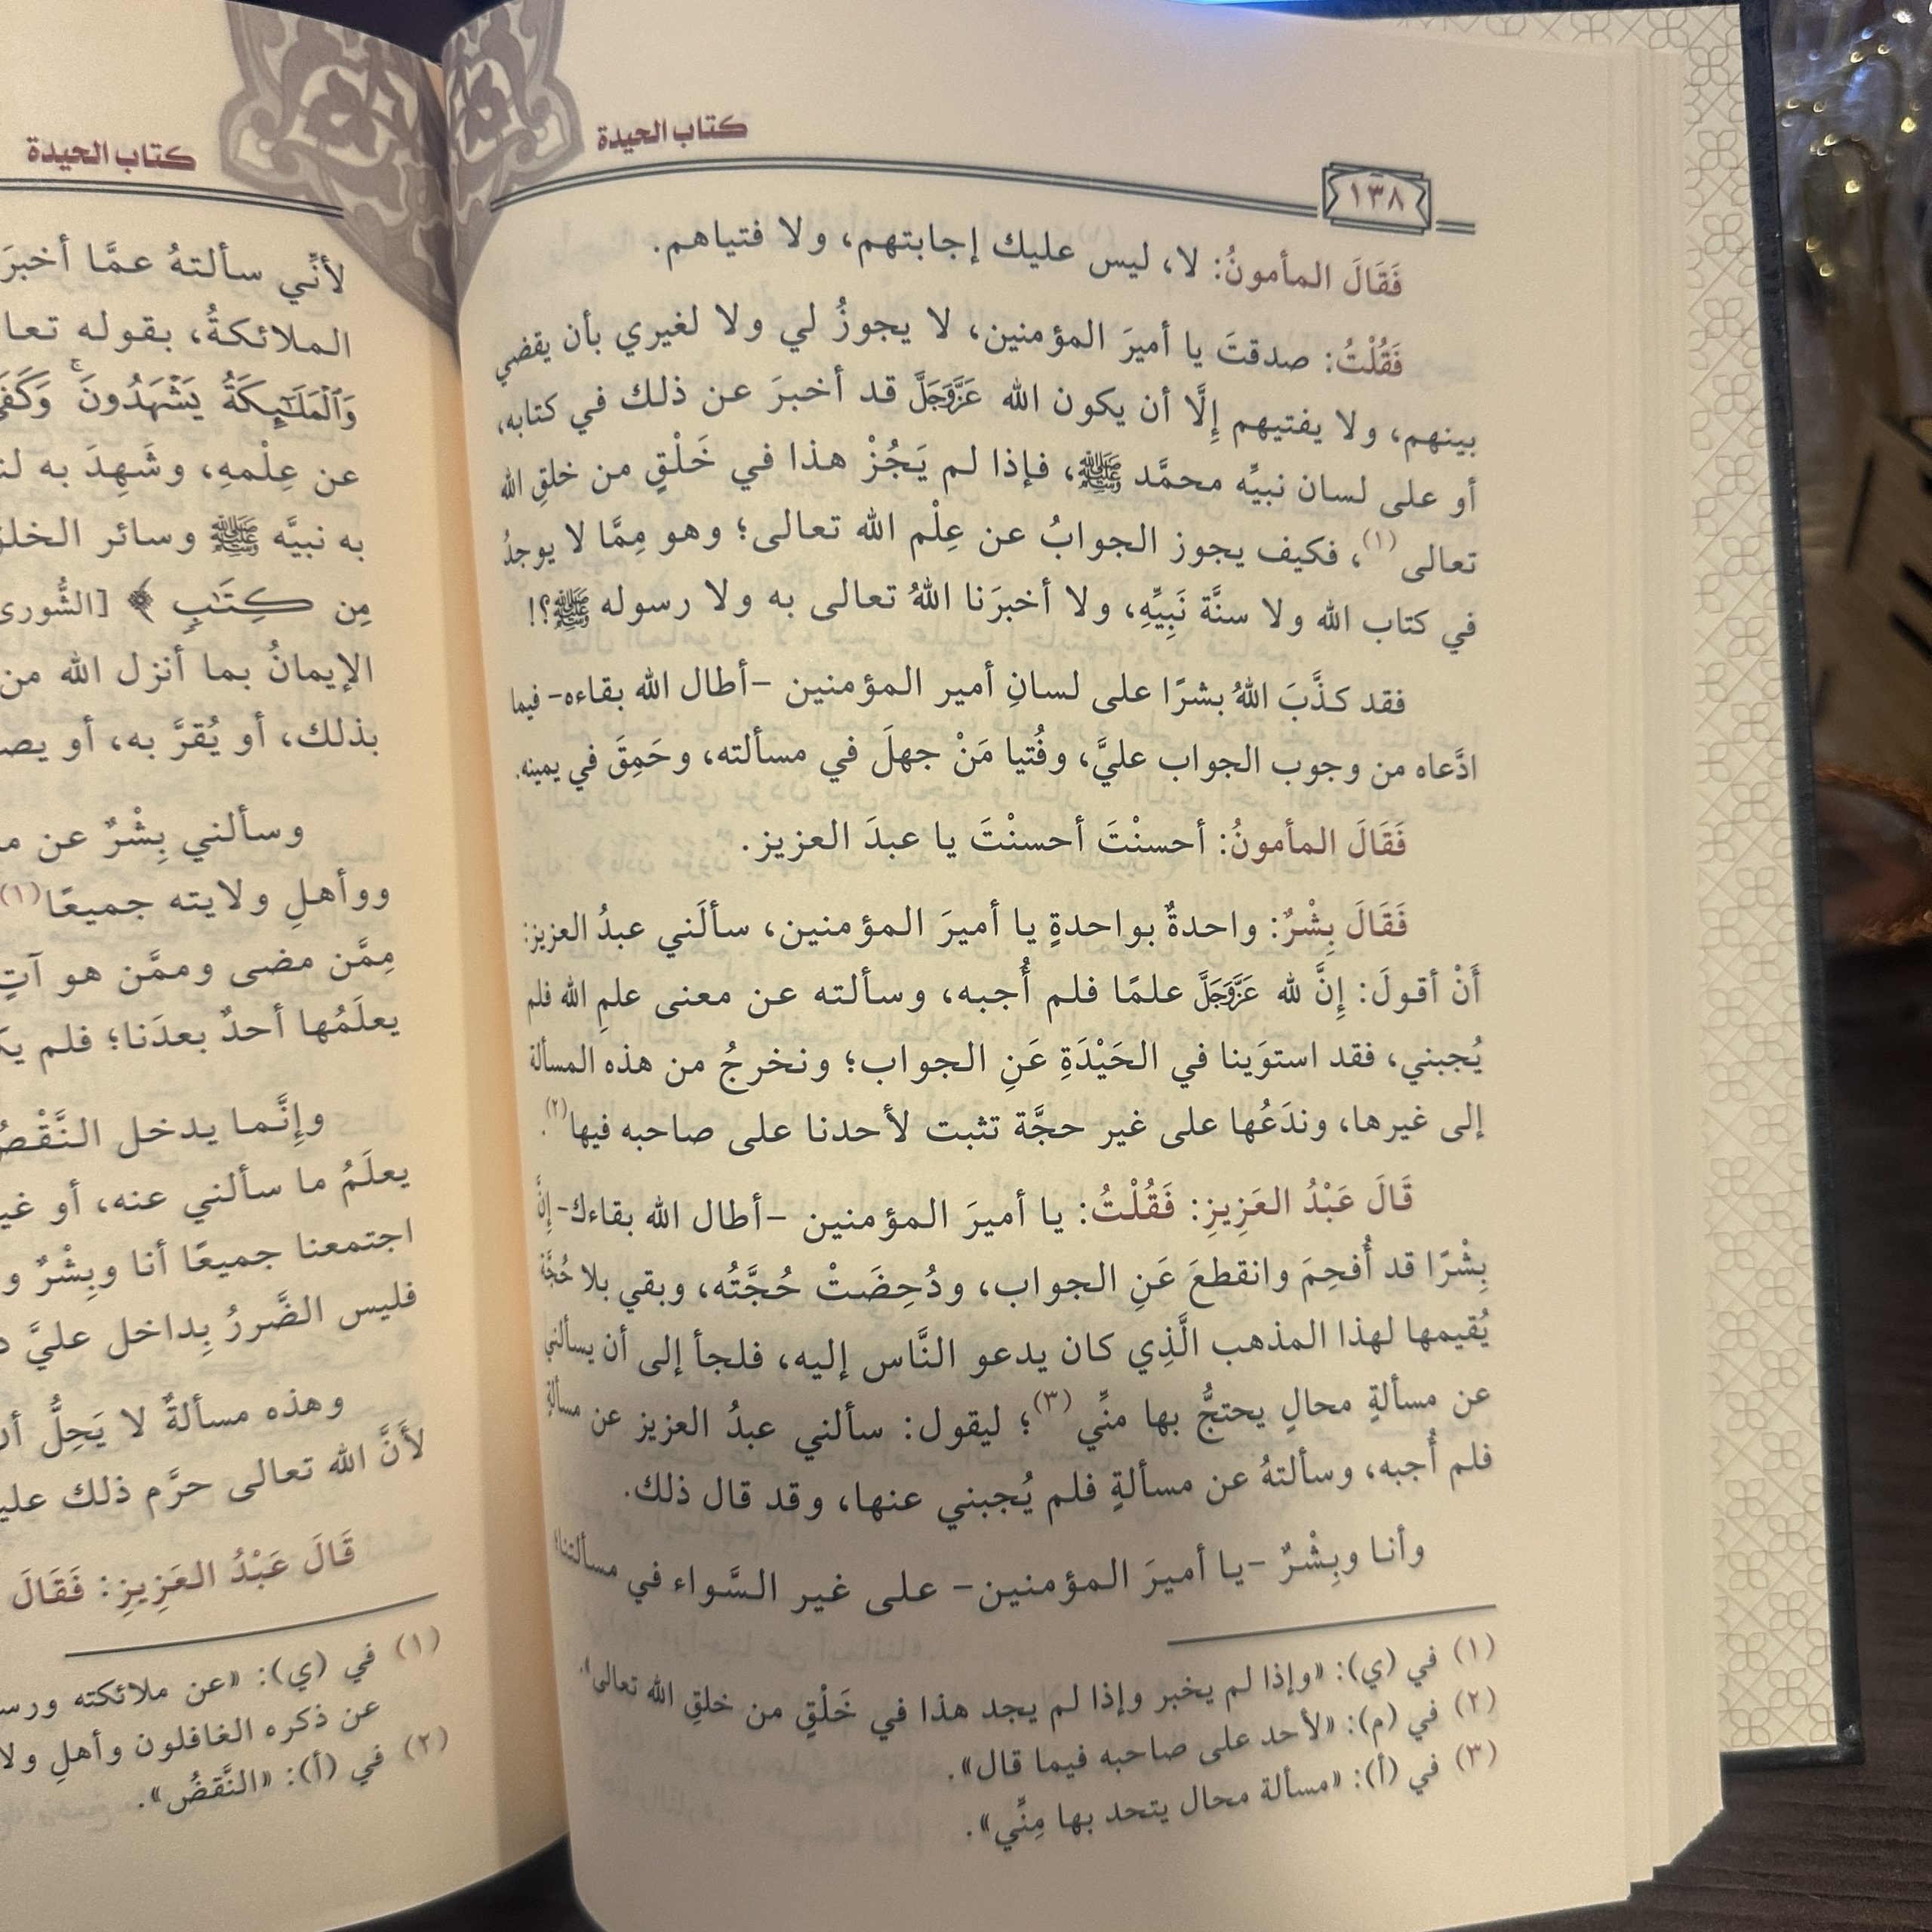 كتاب الحيدة
١٣٨
فَقَالَ المأمونُ: لا، ليس عليك إجابتهم، ولا فتياهم.
فَقُلْتُ: صدقتَ يا أميرَ المؤمنين، لا يجوزُ لي ولا لغيري بأن يقضي
بينهم، ولا يفتيهم إِلَّا أن يكون الله عَزَّوَجَلَّ قد أخبرَ عن ذلك في كتابه،
أو على لسان نبيِّه محمَّد ﷺ، فإذا لم يَجُزْ هذا في خَلْقٍ من خلقِ الله
تعالى(١)، فكيف يجوز الجوابُ عن عِلْم الله تعالى؛ وهو مِمَّا لا يوجدُ
في كتاب الله ولا سنَّة نَبِيِّهِ، ولا أخبرَنا اللهُ تعالى به ولا رسوله ﷺ؟!
فقد كذَّبَ اللهُ بشرًا على لسانِ أمير المؤمنين -أطال الله بقاءه- فيما
ادَّعاه من وجوب الجواب عليَّ، وفُتيا مَنْ جهلَ في مسألته، وحَمِقَ في يمينه.
فَقَالَ المأمونُ: أحسنْتَ أحسنْتَ يا عبدَ العزيز.
فَقَالَ بِشْرٌ: واحدةٌ بواحدةٍ يا أميرَ المؤمنين، سألَني عبدُ العزيز:
أَنْ أقولَ: إِنَّ لله عَزَّوَجَلَّ علمًا فلم أُجبه، وسألته عن معنى علمِ الله فلم
يُجبني، فقد استوَينا في الحَيْدَةِ عَنِ الجواب؛ ونخرجُ من هذه المسألة
إلى غيرها، وندَعُها على غير حجَّة تثبت لأحدنا على صاحبه فيها(٢).
قَالَ عَبْدُ العَزِيزِ: فَقُلْتُ: يا أميرَ المؤمنين -أطال الله بقاءك- إنَّ
بِشْرًا قد أُفحِمَ وانقطعَ عَنِ الجواب، ودُحِضَتْ حُجَّتُه، وبقي بلا حُجَّة
يُقيمها لهذا المذهب الَّذِي كان يدعو النَّاس إليه، فلجأ إلى أن يسألني
عن مسألةٍ محالٍ يحتجُّ بها منِّي(٣)؛ ليقول: سألني عبدُ العزيز عن مسألةٍ
فلم أُجبه، وسألتهُ عن مسألةٍ فلم يُجبني عنها، وقد قال ذلك.
وأنا وبِشْرٌ -يا أميرَ المؤمنين- على غير السَّواء في مسألتنا؛
(١) في (ي): «وإذا لم يخبر وإذا لم يجد هذا في خَلْقٍ من خلقِ الله تعالى».
(٢) في (م): «لأحد على صاحبه فيما قال».
(٣) في (أ): «مسألة محال يتحد بها مِنِّي».
كتاب الحيدة
لأنِّي سألتهُ عمَّا أخبرَ
الملائكةُ، بقوله تعا
وَٱلْمَلَٰٓئِكَةُ يَشْهَدُونَۚ وَكَفَى
عن عِلْمهِ، وشَهِدَ به
به نبيَّه ﷺ وسائر الخلق
مِن كِتَٰبٍ﴾ [الشُّورى
الإيمانُ بما أنزل الله من
بذلك، أو يُقرَّ به، أو
وسألني بِشْرٌ عن
ووأهلِ ولايته جميعًا(١)
مِمَّن مضى وممَّن هو آتٍ
يعلَمُها أحدٌ بعدَنا؛ فلم
وإِنَّما يدخل النَّقْصُ
يعلَمُ ما سألني عنه، أو
اجتمعنا جميعًا أنا وبِشْرٌ و
فليس الضَّررُ بِداخل عليَّ
وهذه مسألةٌ لا يَحِلُّ
لأَنَّ الله تعالى حرَّم ذلك
قَالَ عَبْدُ العَزِيزِ: فَقَالَ
(١) في (ي): «عن ملائكته
عن ذكره الغافلون وأهلِ
(٢) في (أ): «النَّقضُ».